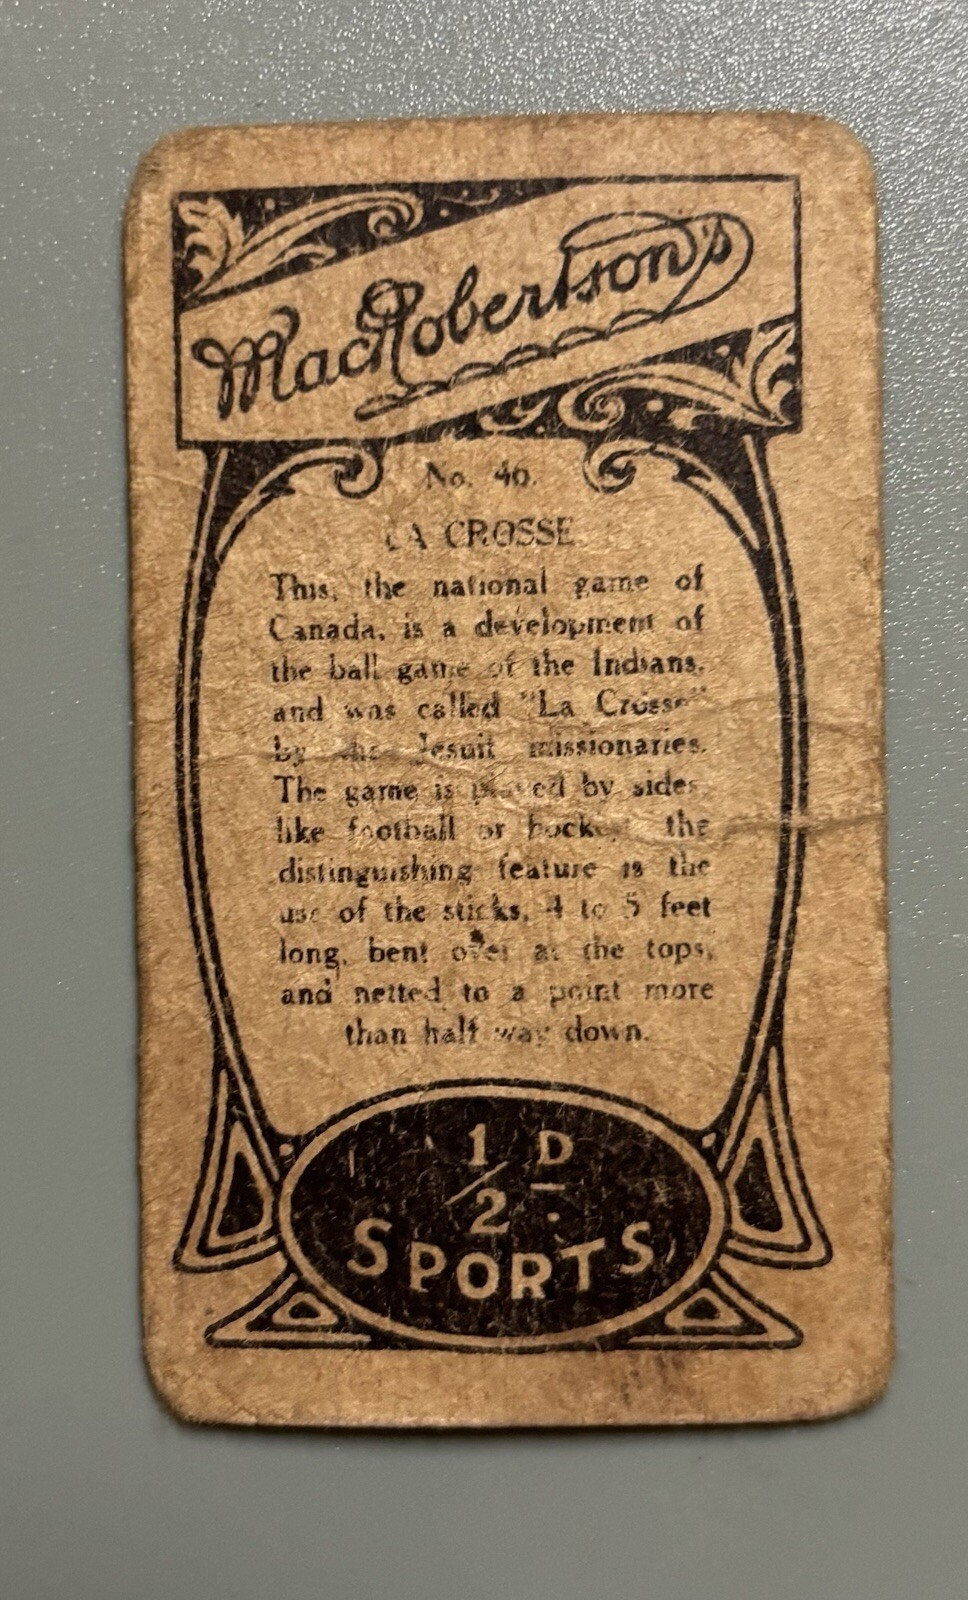 MacRobertson's
No. 40.
LA CROSSE
This, the national game of
Canada, is a development of
the ball game of the Indians,
and was called "La Crosse"
by the Jesuit missionaries.
The game is played by sides,
like football or hockey, the
distinguishing feature is the
use of the sticks, 4 to 5 feet
long, bent over at the tops,
and netted to a point more
than half way down.
1/2 D.
SPORTS